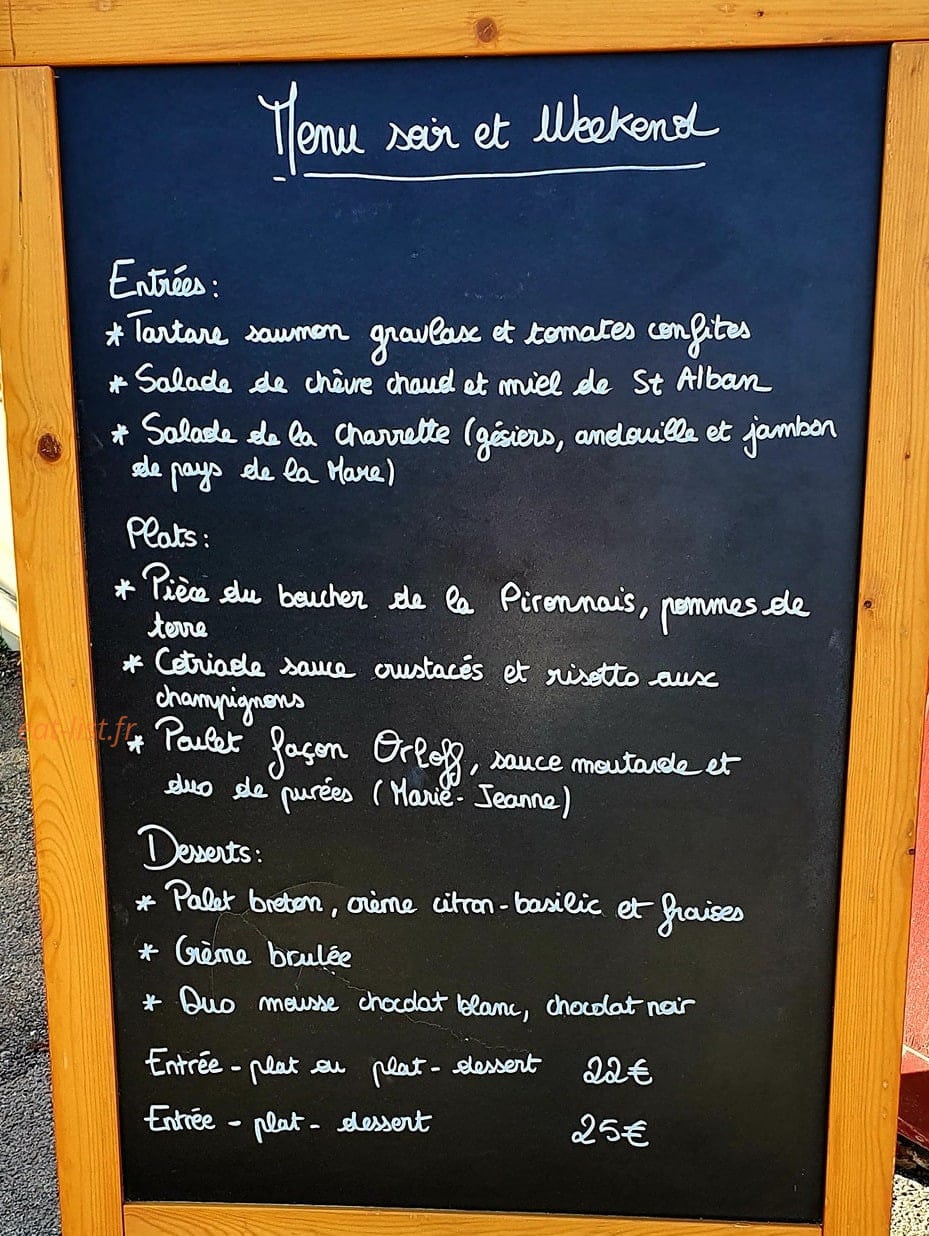 Menu soir et Weekend
Entrées:
* Tartare saumon gravlax et tomates confites
* Salade de chèvre chaud et miel de St Alban
* Salade de la Charrette (gésiers, andouille et jambon
de pays de la Mare)
Plats:
* Pièce du boucher de la Pironnais, pommes de
terre
* Cotriade sauce crustacés et risotto aux
champignons
eat-list.fr
* Poulet façon Orloff, sauce moutarde et
duo de purées (Marie-Jeanne)
Desserts:
* Palet breton, crème citron-basilic et fraises
* Crème brulée
* Duo mousse chocolat blanc, chocolat noir
Entrée - plat ou plat - dessert 22€
Entrée - plat - dessert 25€